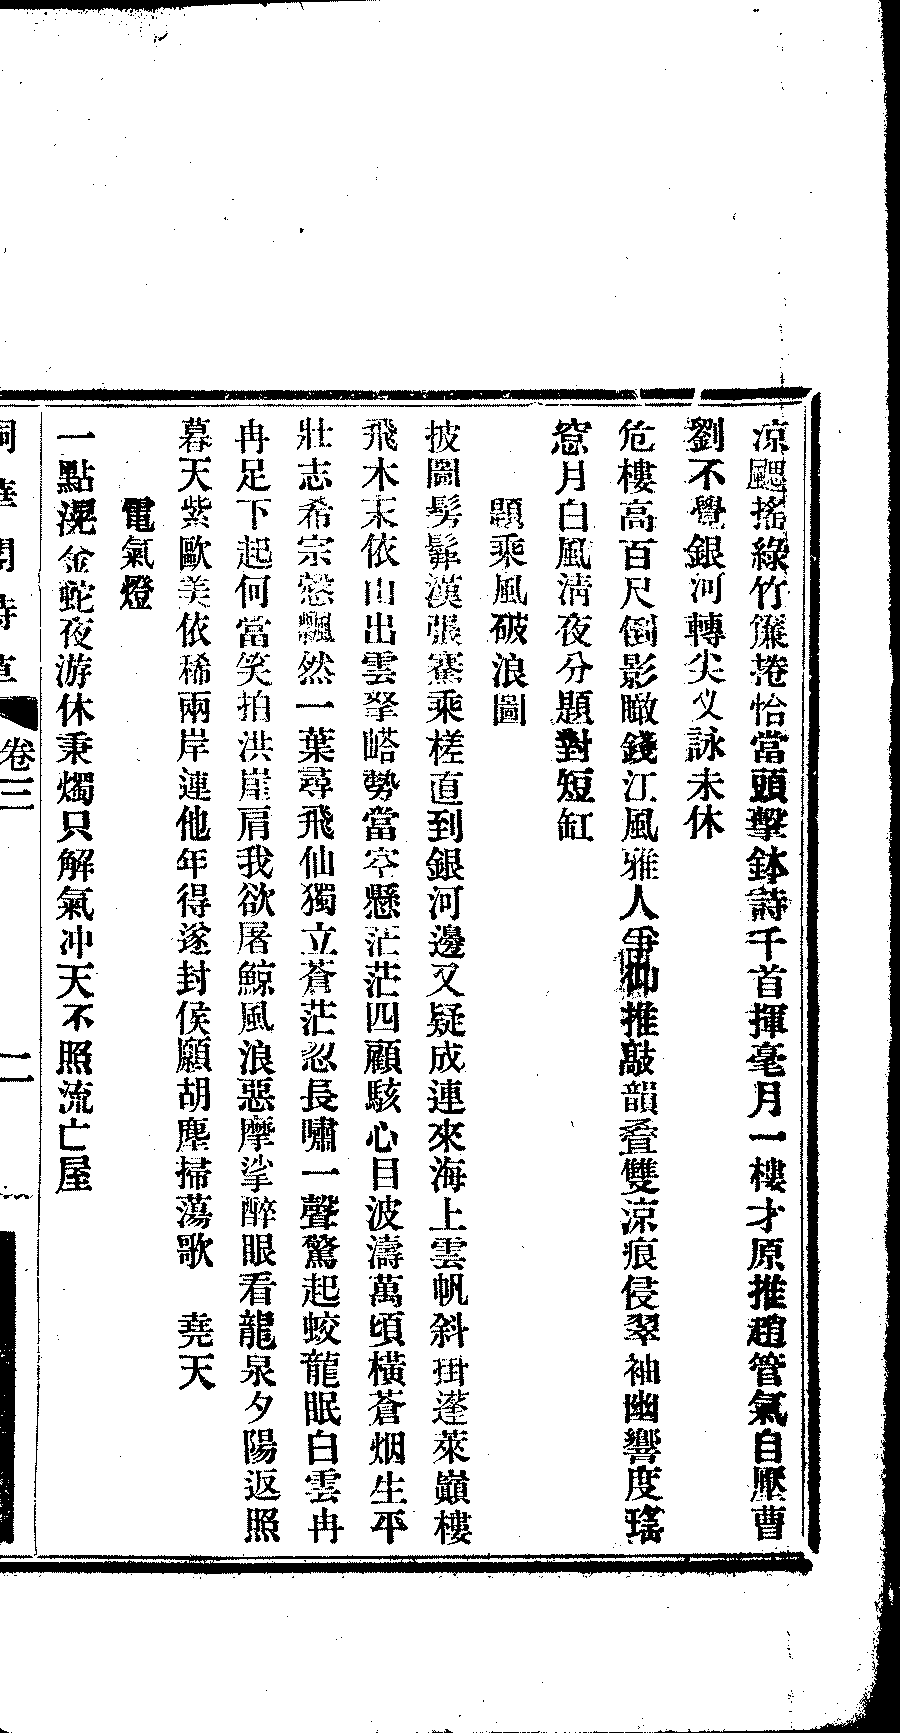 涼颸搖綠竹簾捲恰當頭擊鉢詩千首揮毫月一樓才原推趙管氣自壓曹
劉不覺銀河轉尖义詠未休
危樓高百尺倒影瞰錢江風雅人爭仰推敲韻叠雙涼痕侵翠袖幽響度瑤
窻月白風淸夜分題對短缸
題乘風破浪圖
披圖髣髴漢張騫乘槎直到銀河邊又疑成連來海上雲帆斜掛蓬萊巔樓
飛木末依山出雲擎嵱勢當空懸茫茫四顧駭心目波濤萬頃橫蒼烟生平
壯志希宗慤飄然一葉尋飛仙獨立蒼茫忽長嘯一聲驚起蛟龍眠白雲冉
冉足下起何當笑拍洪崖肩我欲屠鯨風浪惡摩挲醉眼看龍泉夕陽返照
暮天紫歐美依稀兩岸連他年得遂封侯願胡塵掃蕩歌　堯天
電氣燈
一點滉金蛇夜游休秉燭只解氣冲天不照流亡屋
卷三